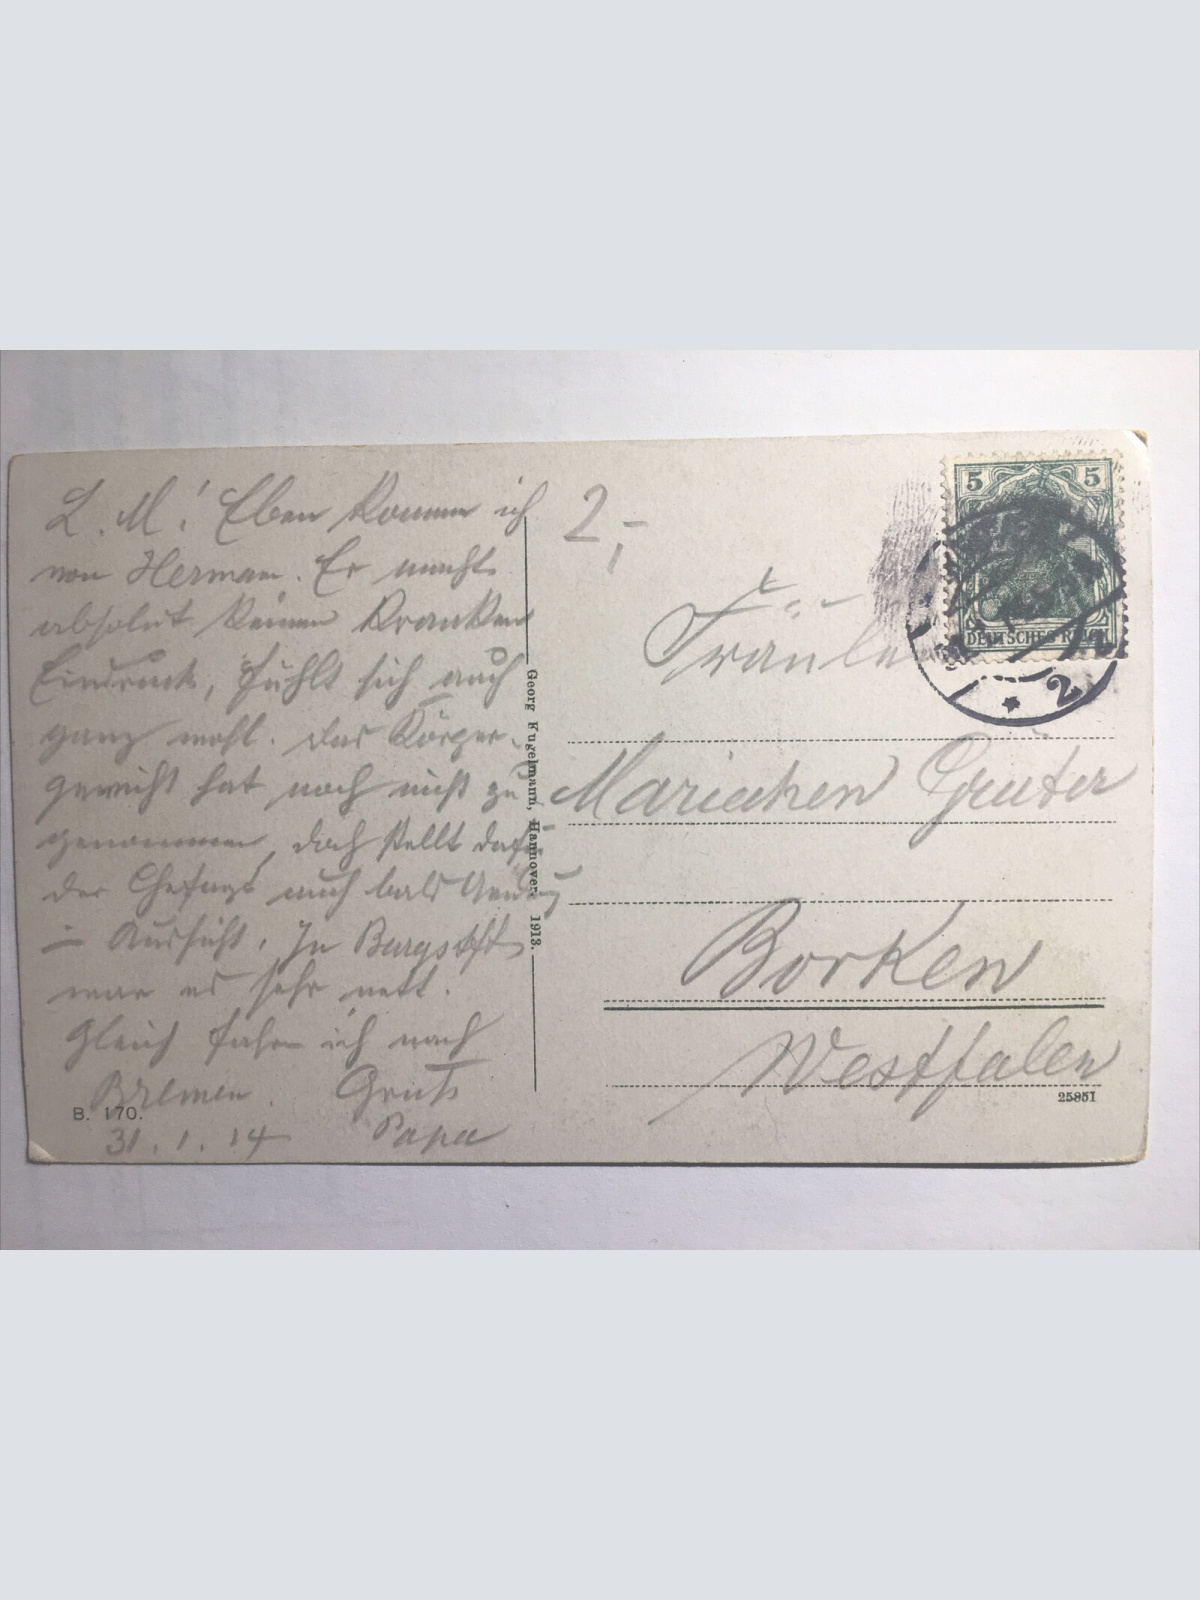 L. M! Eben komme ich
von Herman. Er macht
absolut keinen kranken
Eindruck, fühlt sich auch
ganz wohl. Das Körper-
gewicht hat noch nicht zu-
genommen, doch stellt
der Chefarzt auch bald
in Aussicht. In
war es sehr nett.
Gleich fahre ich nach
Bremen. Gruß
31.1.14 Papa
B. 170.
Georg Fugelmann, Hannover. 1913.
2,-
5 5
DEUTSCHES REICH
* 2
Fräulein
Mariechen Grüter
Borken
Westfalen
25851